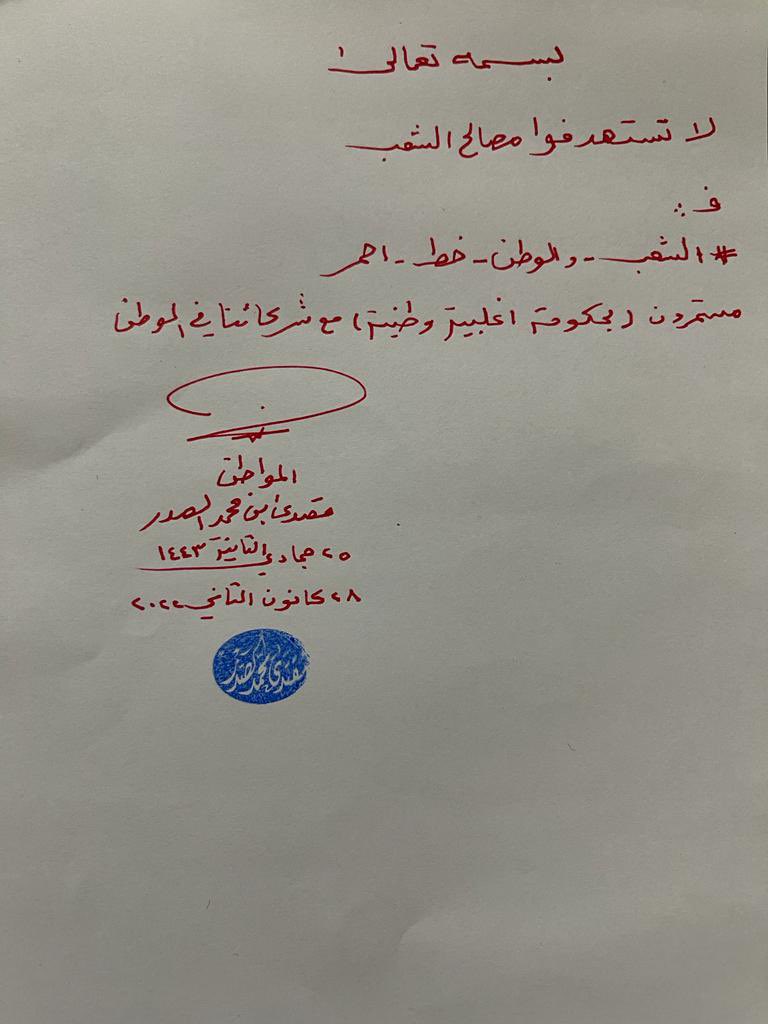 بسمه تعالى
لا تستهدفوا مصالح الشعب
فـ :
#الشعب_والوطن_خط_احمر
مستمرون (بحكومة اغلبية وطنية) مع شركائنا في الوطن
المواطن
مقتدى ابن محمد الصدر
٢٥ جمادي الثانية ١٤٤٣
٢٨ كانون الثاني ٢٠٢٢
مقتدى محمد الصدر